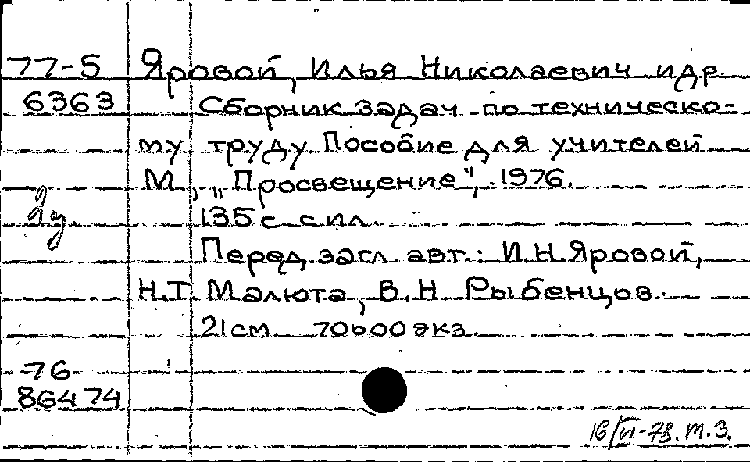 77-5 Яровой, Илья Николаевич и др.
6363 Сборник задач по техническо-
му труду. Пособие для учителей
М., „Просвещение", 1976.
2у.
135 с. с ил.
Перед загл. авт.: И.Н. Яровой,
Н.Т. Малюта, В.Н. Рыбенцов.
21 см 70000 экз.
76
86474
16/VI-78. т.з.